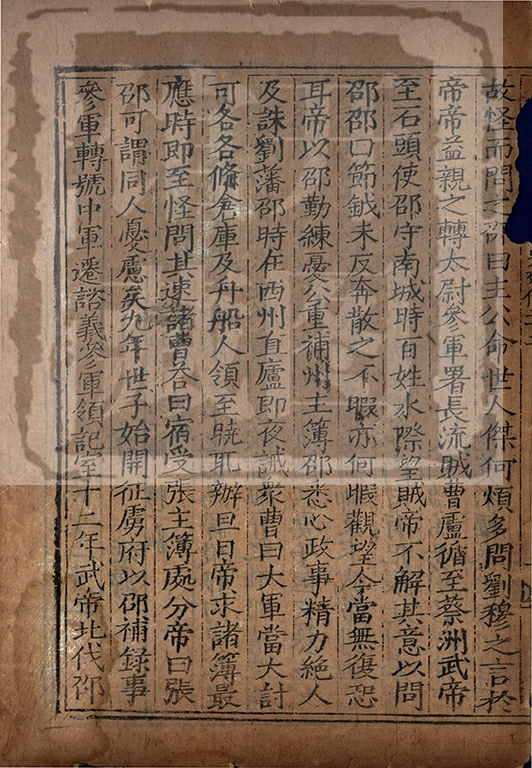 故怪而問之邵曰主公命世人傑何煩多問劉穆之言於
帝帝益親之轉太尉參軍署長流賊曹盧循至蔡洲武帝
至石頭使邵守南城時百姓水際望賊帝不解其意以問
邵邵曰節鉞未反奔散之不暇亦何暇觀望今當無復恐
耳帝以邵勤練憂公重補州主簿邵悉心政事精力絶人
及誅劉藩邵時在西州直廬即夜誡衆曹曰大軍當大討
可各各條倉庫及舟船人領至曉取辦旦日帝求諸簿最
應時即至怪問其速諸曹荅曰宿受張主簿處分帝曰張
邵可謂同人憂慮矣九年世子始開征虜府以邵補録事
參軍轉號中軍遷諮議參軍領記室十二年武帝北伐邵